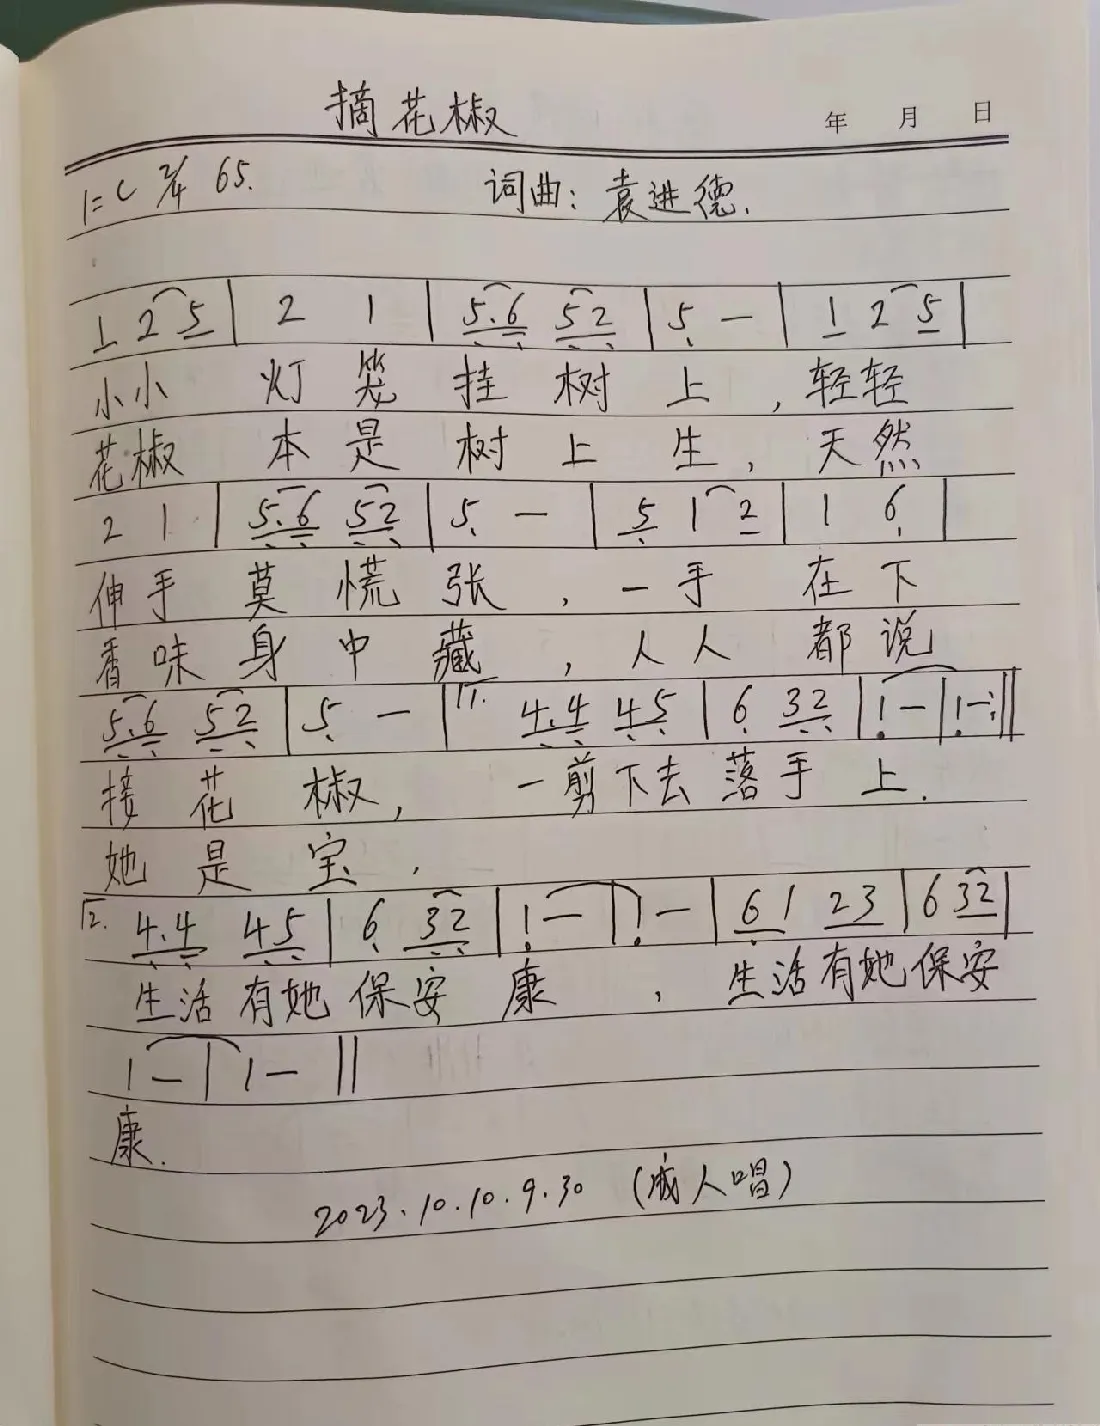 摘花椒
年 月 日
1=C 2/4 65.
词曲：袁进德.
1 2 5 | 2 1 | 5.6 52 | 5 — | 1 2 5 |
小小 灯笼 挂 树 上 ，轻轻
花椒 本是 树 上 生 ，天然
2 1 | 5.6 52 | 5 — | 5 1 2 | 1 6 |
伸手 莫 慌 张 ，一手 在下
香味 身 中 藏 ，人人 都说
5.6 52 | 5 — | 1. 4.4 45 | 6 32 | 1 — | 1 — :||
接 花 椒， 一剪下去落手上.
她 是 宝 .
2. 4.4 45 | 6 32 | 1 — | 1 — | 61 23 | 6 32 |
生活有她保安 康 ，生活有她保安
1 — | 1 — ||
康.
2023.10.10.9.30 （成人唱）